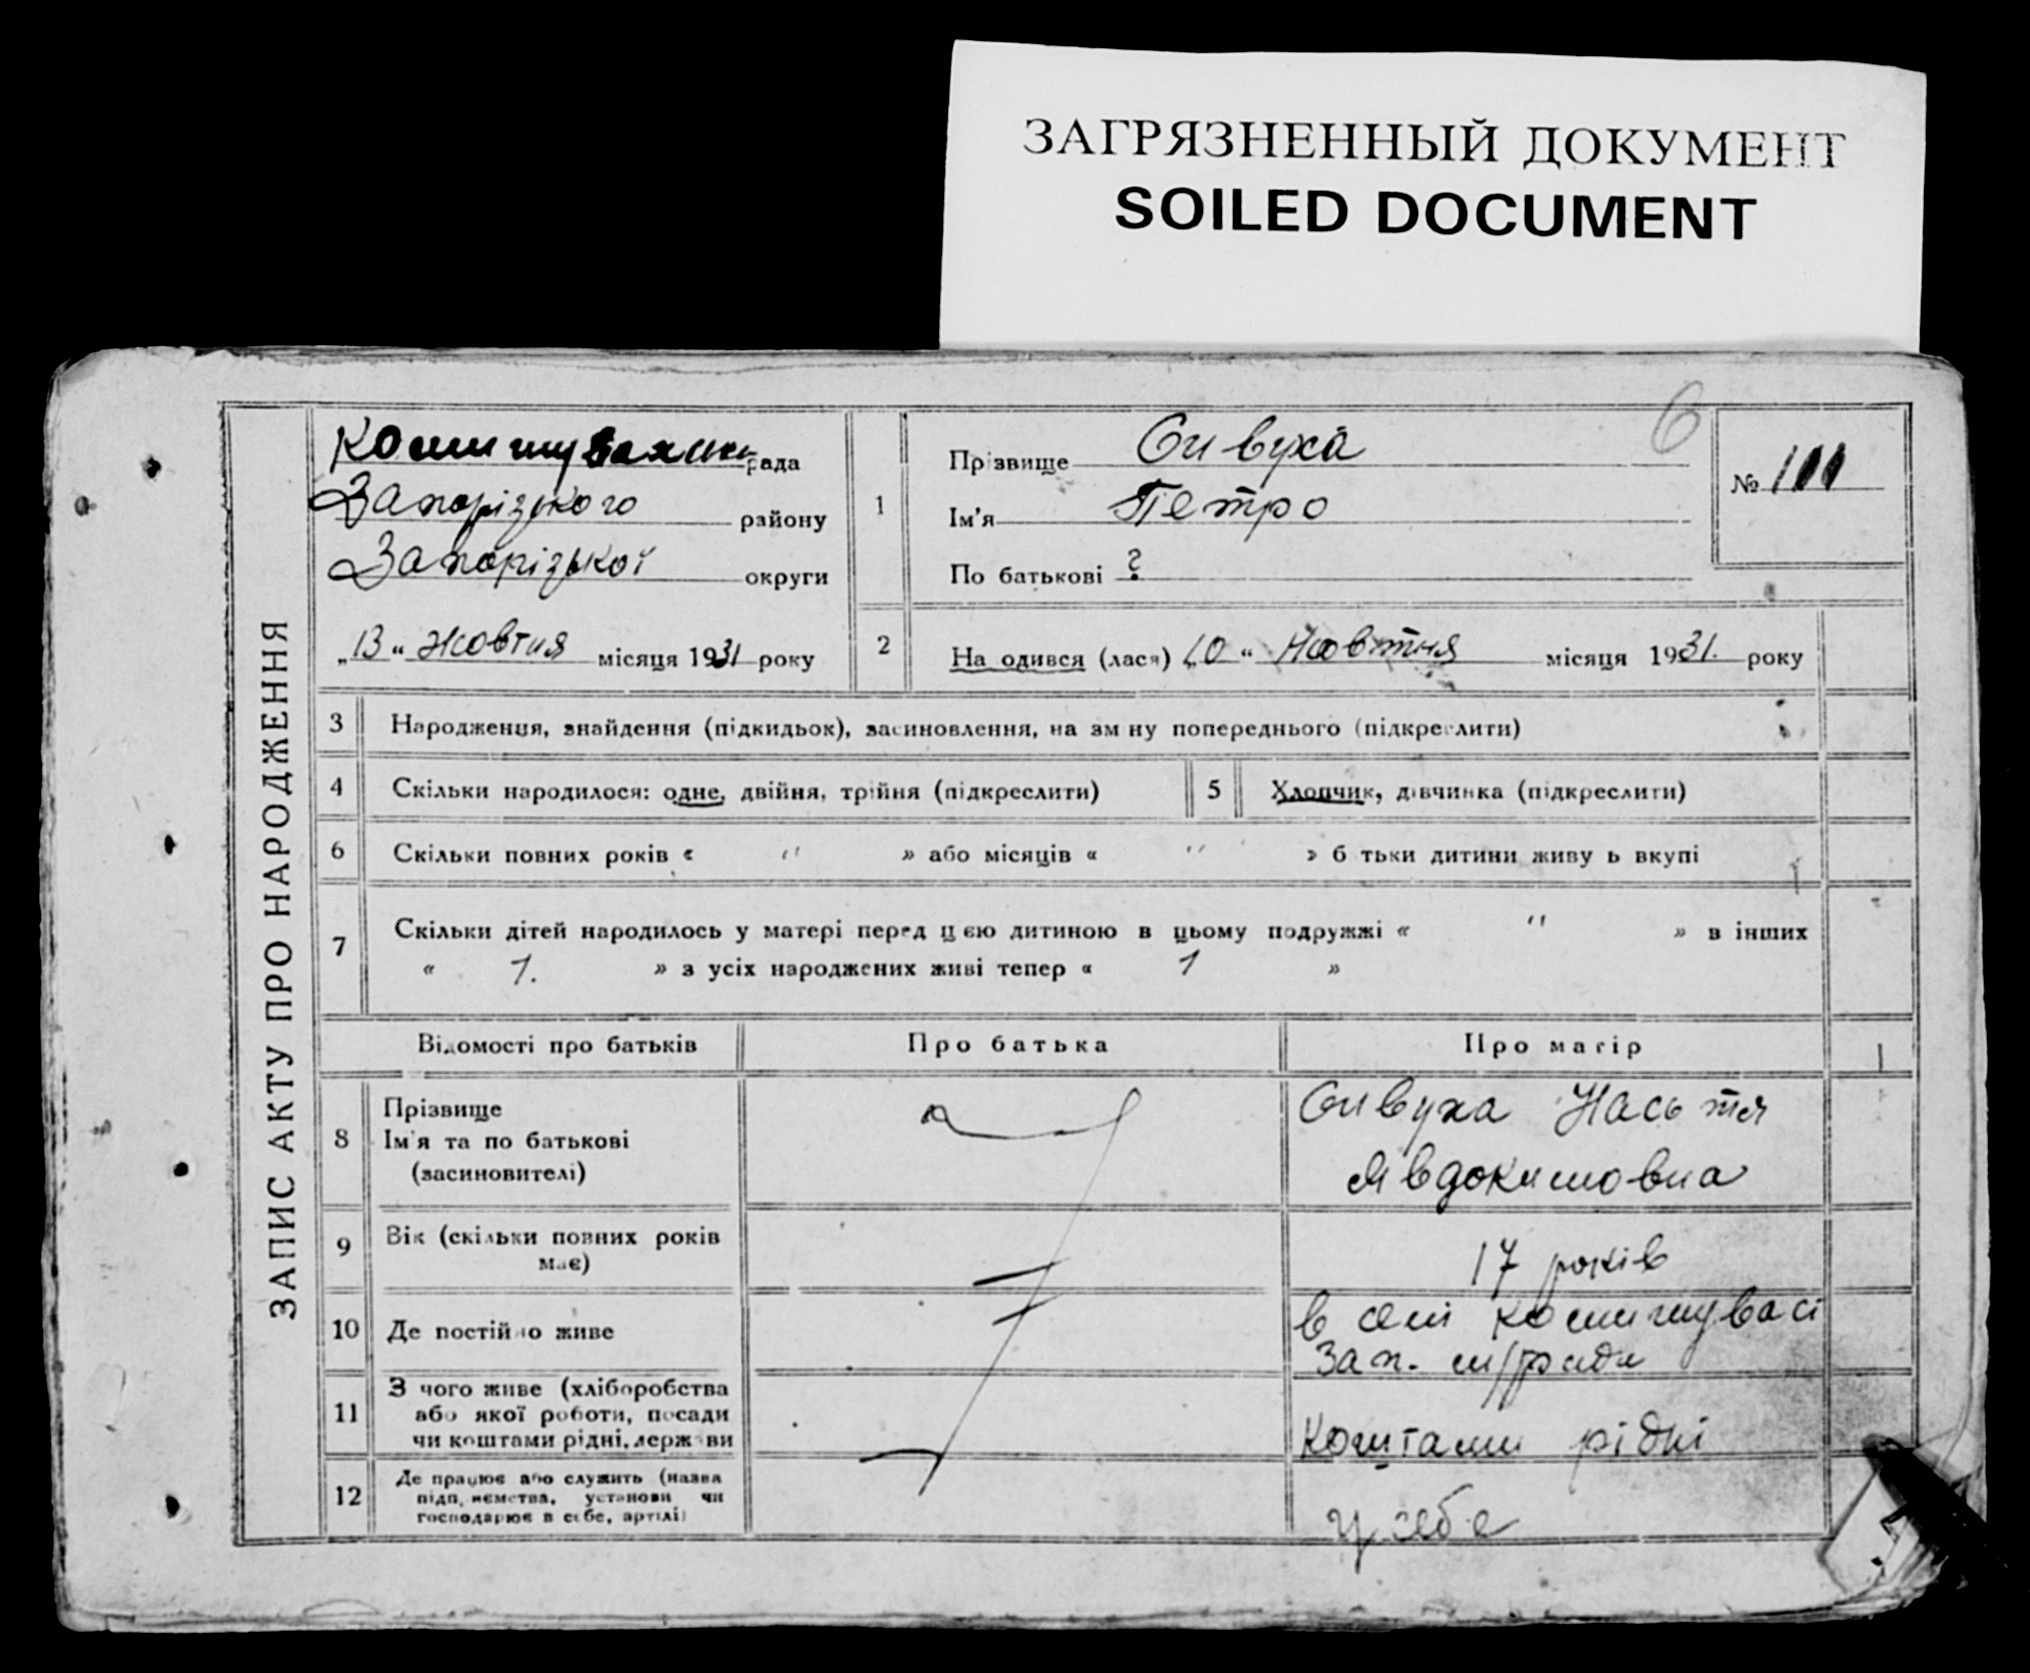 ЗАГРЯЗНЕННЫЙ ДОКУМЕНТ
SOILED DOCUMENT
6
ЗАПИС АКТУ ПРО НАРОДЖЕННЯ
рада
Запорізького району
Запорізької округи
„13“ жовтня місяця 1931 року
1
Прізвище Сивуха
Ім'я Петро
По батькові ?
№ 111
2
На одився (лася) „10“ Жовтня місяця 1931. року
3 Народження, знайдення (підкидьок), засиновлення, на зм ну попереднього (підкреслити)
4 Скільки народилося: одне, двійня, трійня (підкреслити)
5 Хлопчик, дівчинка (підкреслити)
6 Скільки повних років « " » або місяців « " » б тьки дитини живу ь вкупі
7 Скільки дітей народилось у матері перед цією дитиною в цьому подружжі « " » в інших
« 1. » з усіх народжених живі тепер « 1 »
Відомості про батьків Про батька Про матір
8 Прізвище
Ім'я та по батькові
(засиновителі)
Сивуха Настя
Явдокимовна
9 Вік (скільки повних років
має)
17 років
10 Де постійно живе
в селі Комишувасі
Зап. м/ради
11 З чого живе (хліборобства
або якої роботи, посади
чи коштами рідні, держави
Коштами рідні
12 Де працює або служить (назва
підп, иємства, установи чи
господарює в себе, артілі)
у себе